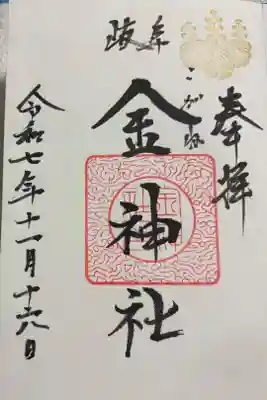 奉拝
岐阜
こがね
金神社
令和七年十一月十六日